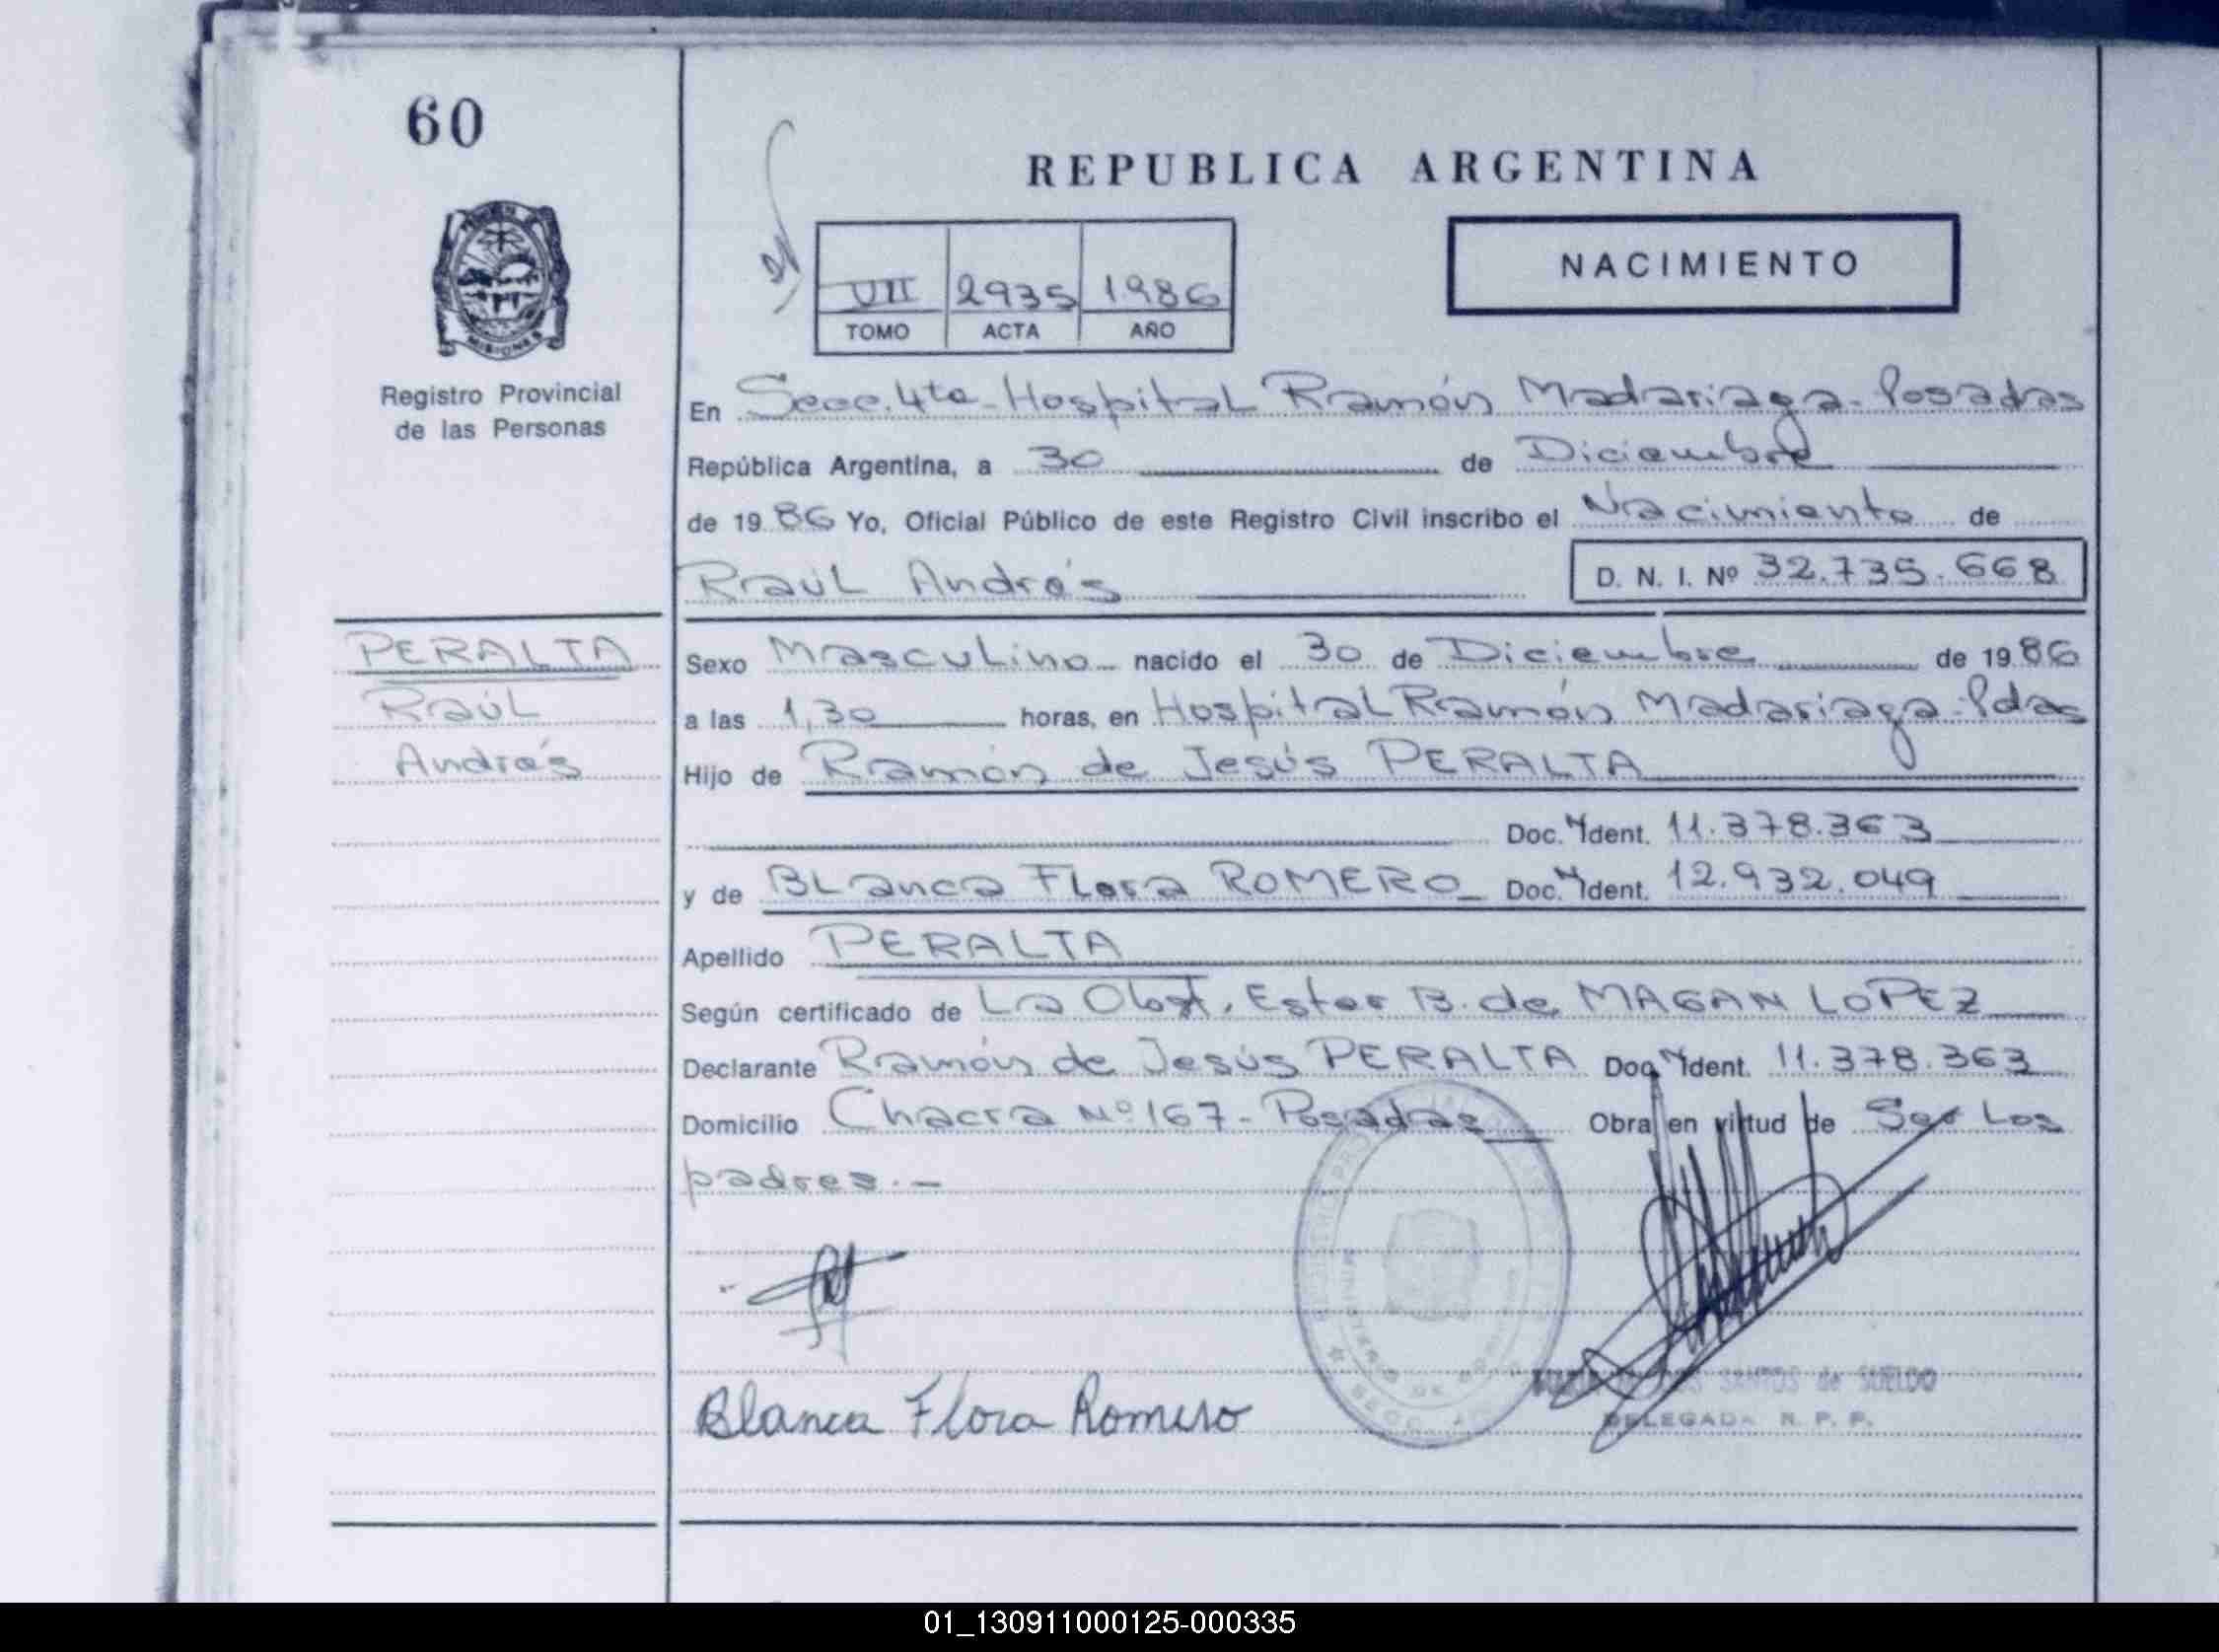 60
REPUBLICA ARGENTINA
NACIMIENTO
VII 2935 1986
TOMO ACTA AÑO
MISIONES
Registro Provincial
de las Personas
En Secc. 4ta - Hospital Ramón Madariaga - Posadas
República Argentina, a 30 de Diciembre
de 1986 Yo, Oficial Público de este Registro Civil inscribo el Nacimiento de
Raúl Andrés D. N. I. Nº 32.735.668
PERALTA
Raúl
Andrés
Sexo Masculino nacido el 30 de Diciembre de 1986
a las 1,30 horas, en Hospital Ramón Madariaga - Pdas
Hijo de Ramón de Jesús PERALTA
Doc. Ident. 11.378.363
y de Blanca Flora ROMERO Doc. Ident. 12.932.049
Apellido PERALTA
Según certificado de La Obst. Ester B. de MAGAN LOPEZ
Declarante Ramón de Jesús PERALTA Doc. Ident. 11.378.363
Domicilio Chacra Nº 167 - Posadas Obra en virtud de Ser Los
padres.-
SANTOS de SUELDO
DELEGADA R. P. P.
Blanca Flora Romero
01_130911000125-000335